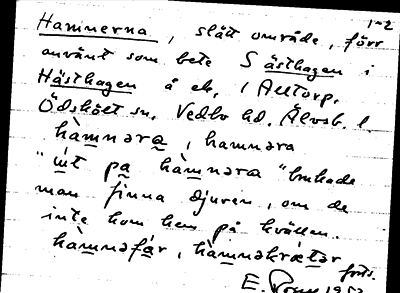 1-2
Hamnerna, slätt område, förr
använt som bete S ästhagen i
Hästhagen å ek. 1 Alltorp,
Ödskölt sn. Vedbo hd. Älvsb. l.
hàmnara, hamnara
"ùt pa hàmnara" brukade
man finna djuren, om de
inte kom hem på kvällen.
hàmnəfár, hàmnəkrǽtər
forts.
E.